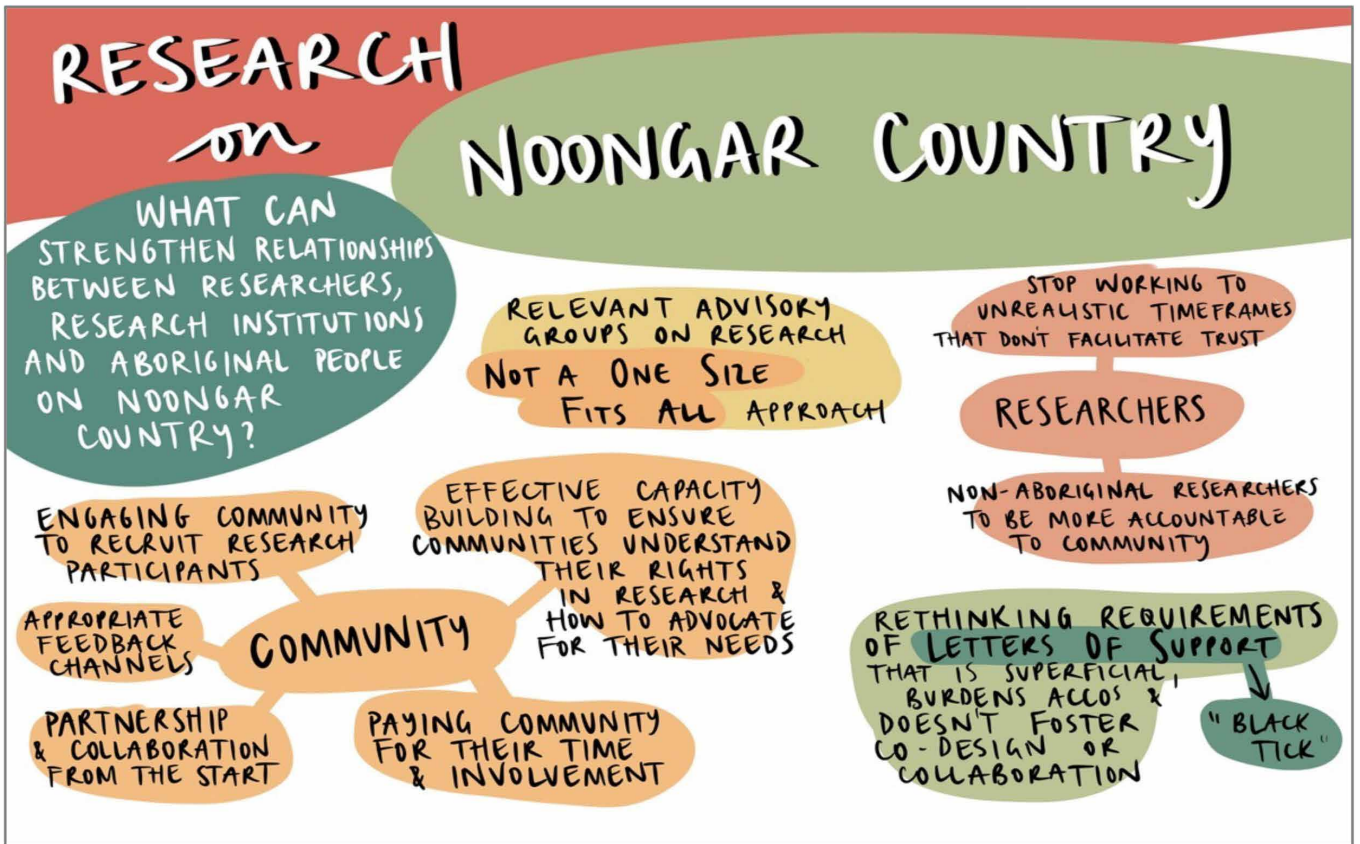 RESEARCH
on
NOONGAR COUNTRY
WHAT CAN
STRENGTHEN RELATIONSHIPS
BETWEEN RESEARCHERS,
RESEARCH INSTITUTIONS
AND ABORIGINAL PEOPLE
ON NOONGAR
COUNTRY?
RELEVANT ADVISORY
GROUPS ON RESEARCH
NOT A ONE SIZE
FITS ALL APPROACH
STOP WORKING TO
UNREALISTIC TIMEFRAMES
THAT DON'T FACILITATE TRUST
RESEARCHERS
NON-ABORIGINAL RESEARCHERS
TO BE MORE ACCOUNTABLE
TO COMMUNITY
ENGAGING COMMUNITY
TO RECRUIT RESEARCH
PARTICIPANTS
EFFECTIVE CAPACITY
BUILDING TO ENSURE
COMMUNITIES UNDERSTAND
THEIR RIGHTS
IN RESEARCH &
HOW TO ADVOCATE
FOR THEIR NEEDS
APPROPRIATE
FEEDBACK
CHANNELS
COMMUNITY
PARTNERSHIP
& COLLABORATION
FROM THE START
PAYING COMMUNITY
FOR THEIR TIME
& INVOLVEMENT
RETHINKING REQUIREMENTS
OF LETTERS OF SUPPORT
THAT IS SUPERFICIAL,
BURDENS ACCOS &
DOESN'T FOSTER
CO-DESIGN OR
COLLABORATION
"BLACK
TICK"